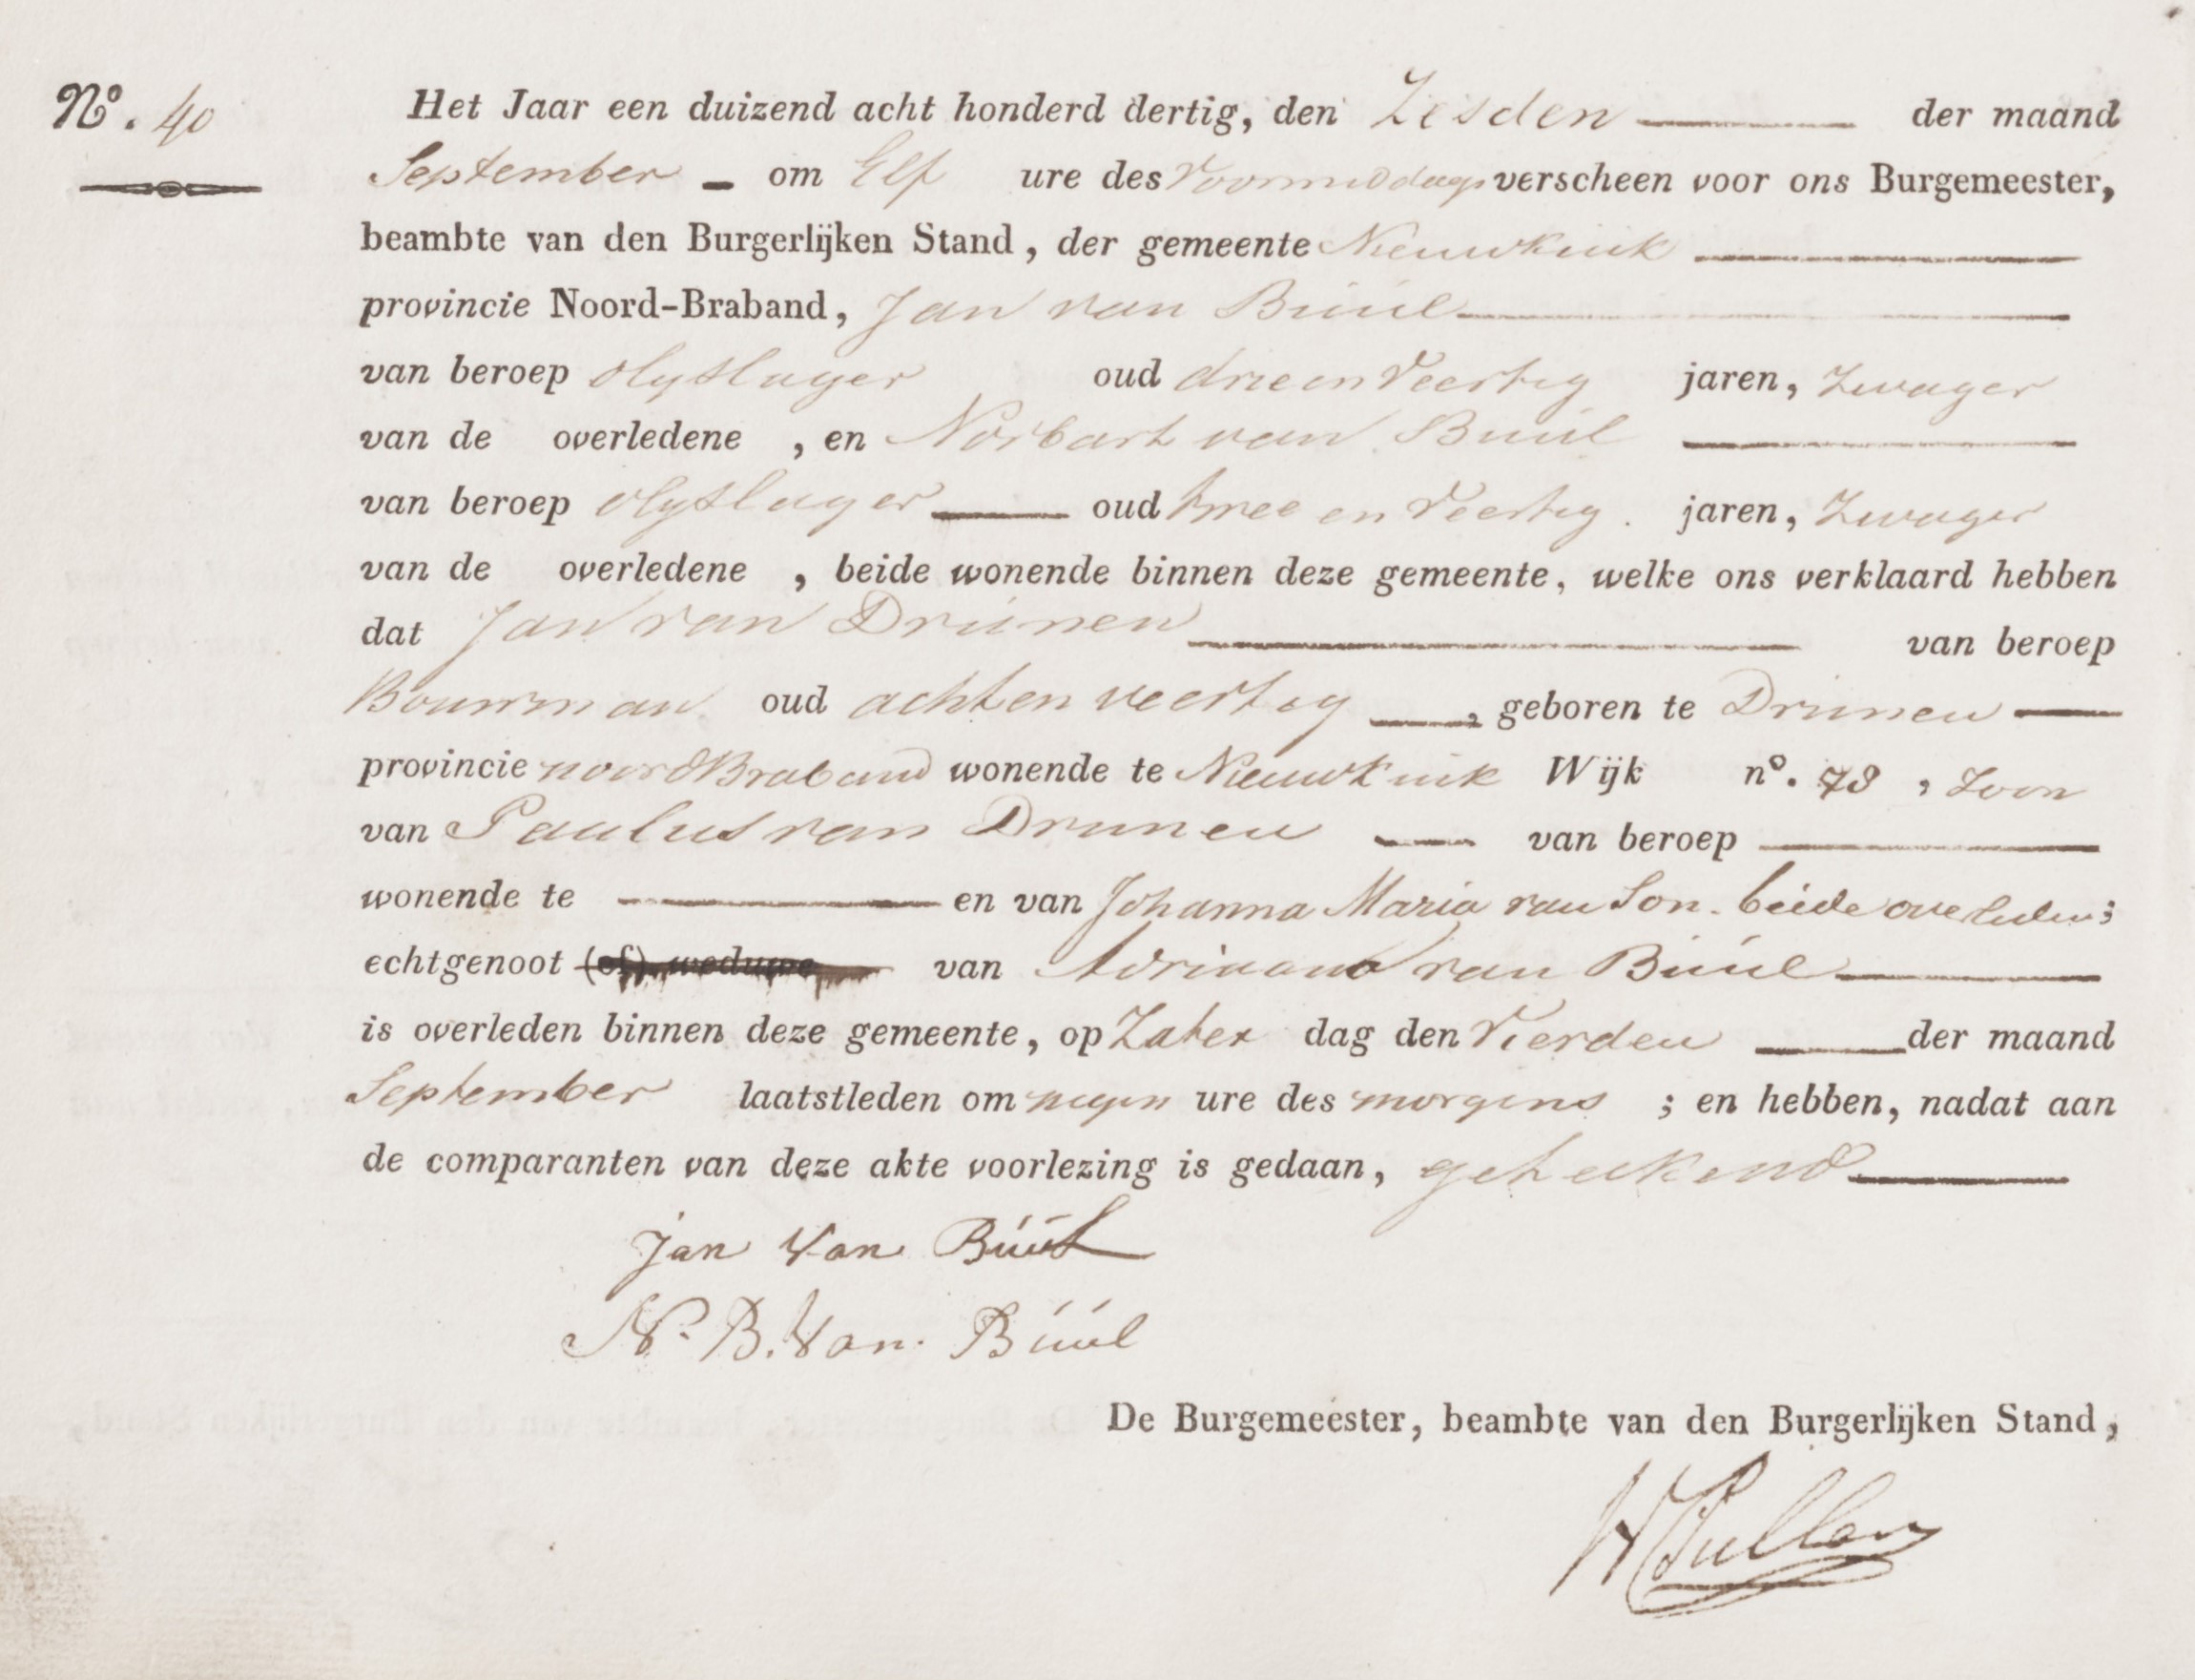 Nº. 40
Het Jaar een duizend acht honderd dertig, den Zesden der maand
September - om Elf ure des Voormiddags verscheen voor ons Burgemeester,
beambte van den Burgerlijken Stand, der gemeente Nieuwkuik
provincie Noord-Braband, Jan van Búúl
van beroep olyslager oud drie en Veertig jaren, Zwager
van de overledene , en Norbart van Buúl
van beroep olyslager oud twee en Veertig . jaren, Zwager
van de overledene , beide wonende binnen deze gemeente, welke ons verklaard hebben
dat Jan van Drúnen van beroep
Bouwman oud achten veertig , geboren te Drunen
provincie noord Braband wonende te Nieuwkuik Wijk nº. 78 , Zoon
van Paulus van Drunen van beroep
wonende te en van Johanna Maria van Son. beide overleden;
echtgenoot (of) weduwe van Adriaana van Búúl
is overleden binnen deze gemeente, op Zater dag den Vierden der maand
September laatstleden om negen ure des morgens ; en hebben, nadat aan
de comparanten van deze akte voorlezing is gedaan, geteekend
Jan Van Búúl
N. B. Van. Búúl
De Burgemeester, beambte van den Burgerlijken Stand,